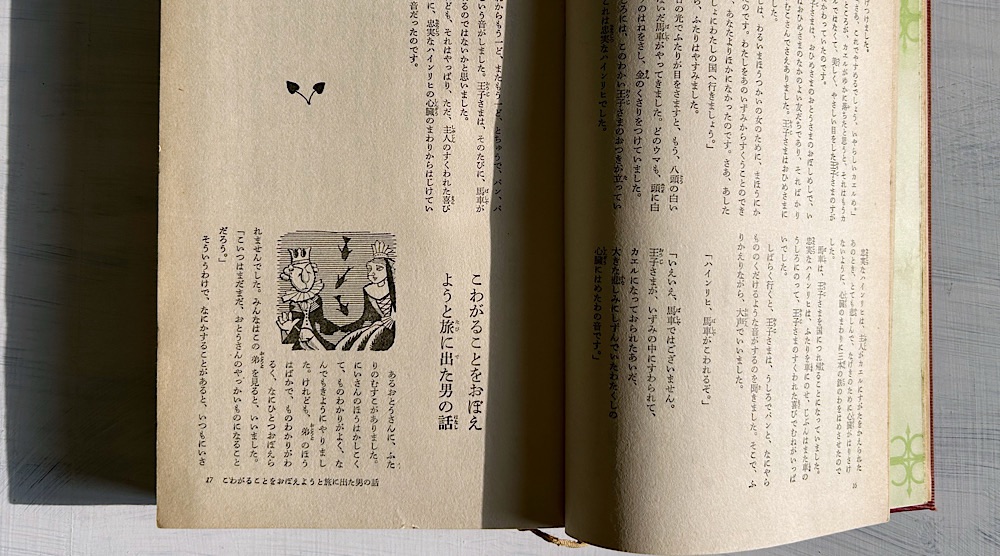 は、わるいまほうつかいの女のために、まほうにか
のです。わたしをあのいずみからすくうことのでき
、あなたよりほかになかったのです。さあ、あした
しょにわたしの国へ行きましょう。」
、ふたりはやすみました。
日の光でふたりが目をさますと、もう、八頭の白い
ないだ馬車がやってきました。どのウマも、頭に白
のはねをさし、金のくさりをつけていました。
ろには、このわかい王子さまのおつきが立ってい
れは忠実なハインリヒでした。
忠実なハインリヒは、主人がカエルにすがたをかえられた
あのとき、とても悲しんで、なげきのために心臓がはりさけ
ないように、心臓のまわりに三本の鉄のわをはめさせたので
した。
馬車は、王子さまを国につれ帰ることになっていました。
忠実なハインリヒは、ふたりを車にのせ、じぶんはまた車の
うしろにのって、王子さまのすくわれた喜びでむねがいっぱ
いでした。
しばらく行くと、王子さまは、うしろでパンと、なにやら
もののくだけるような音がするのを聞きました。そこで、ふ
りかえりながら、大声でいいました。
「ハインリヒ、馬車がこわれるぞ。」
「いえいえ、馬車ではございません。
王子さまが、いずみの中にすわられて、
カエルになっておられたあいだ、
大きな悲しみにしずんでいたわたくしの
心臓にはめたわの音です。」
からもう一ど、またもう一ど、とちゅうで、パン、パ
いう音がしました。王子さまは、そのたびに、馬車が
のではないかと思いました。
ども、それはやっぱり、ただ、主人のすくわれた喜び
に、忠実なハインリヒの心臓のまわりからはじけてい
音だったのです。
こわがることをおぼえ
ようと旅に出た男の話
あるおとうさんに、ふた
りのむすこがありました。
にいさんのほうはかしこく
て、ものわかりがよく、な
んでもきようにやりまし
た。けれども、弟のほう
はばかで、ものわかりがわ
るく、なにひとつおぼえら
れませんでした。みんなはこの弟を見ると、いいました。
「こいつはまだまだ、おとうさんのやっかいものになること
だろう。」
そういうわけで、なにかすることがあると、いつもにいさ
47 こわがることをおぼえようと旅に出た男の話